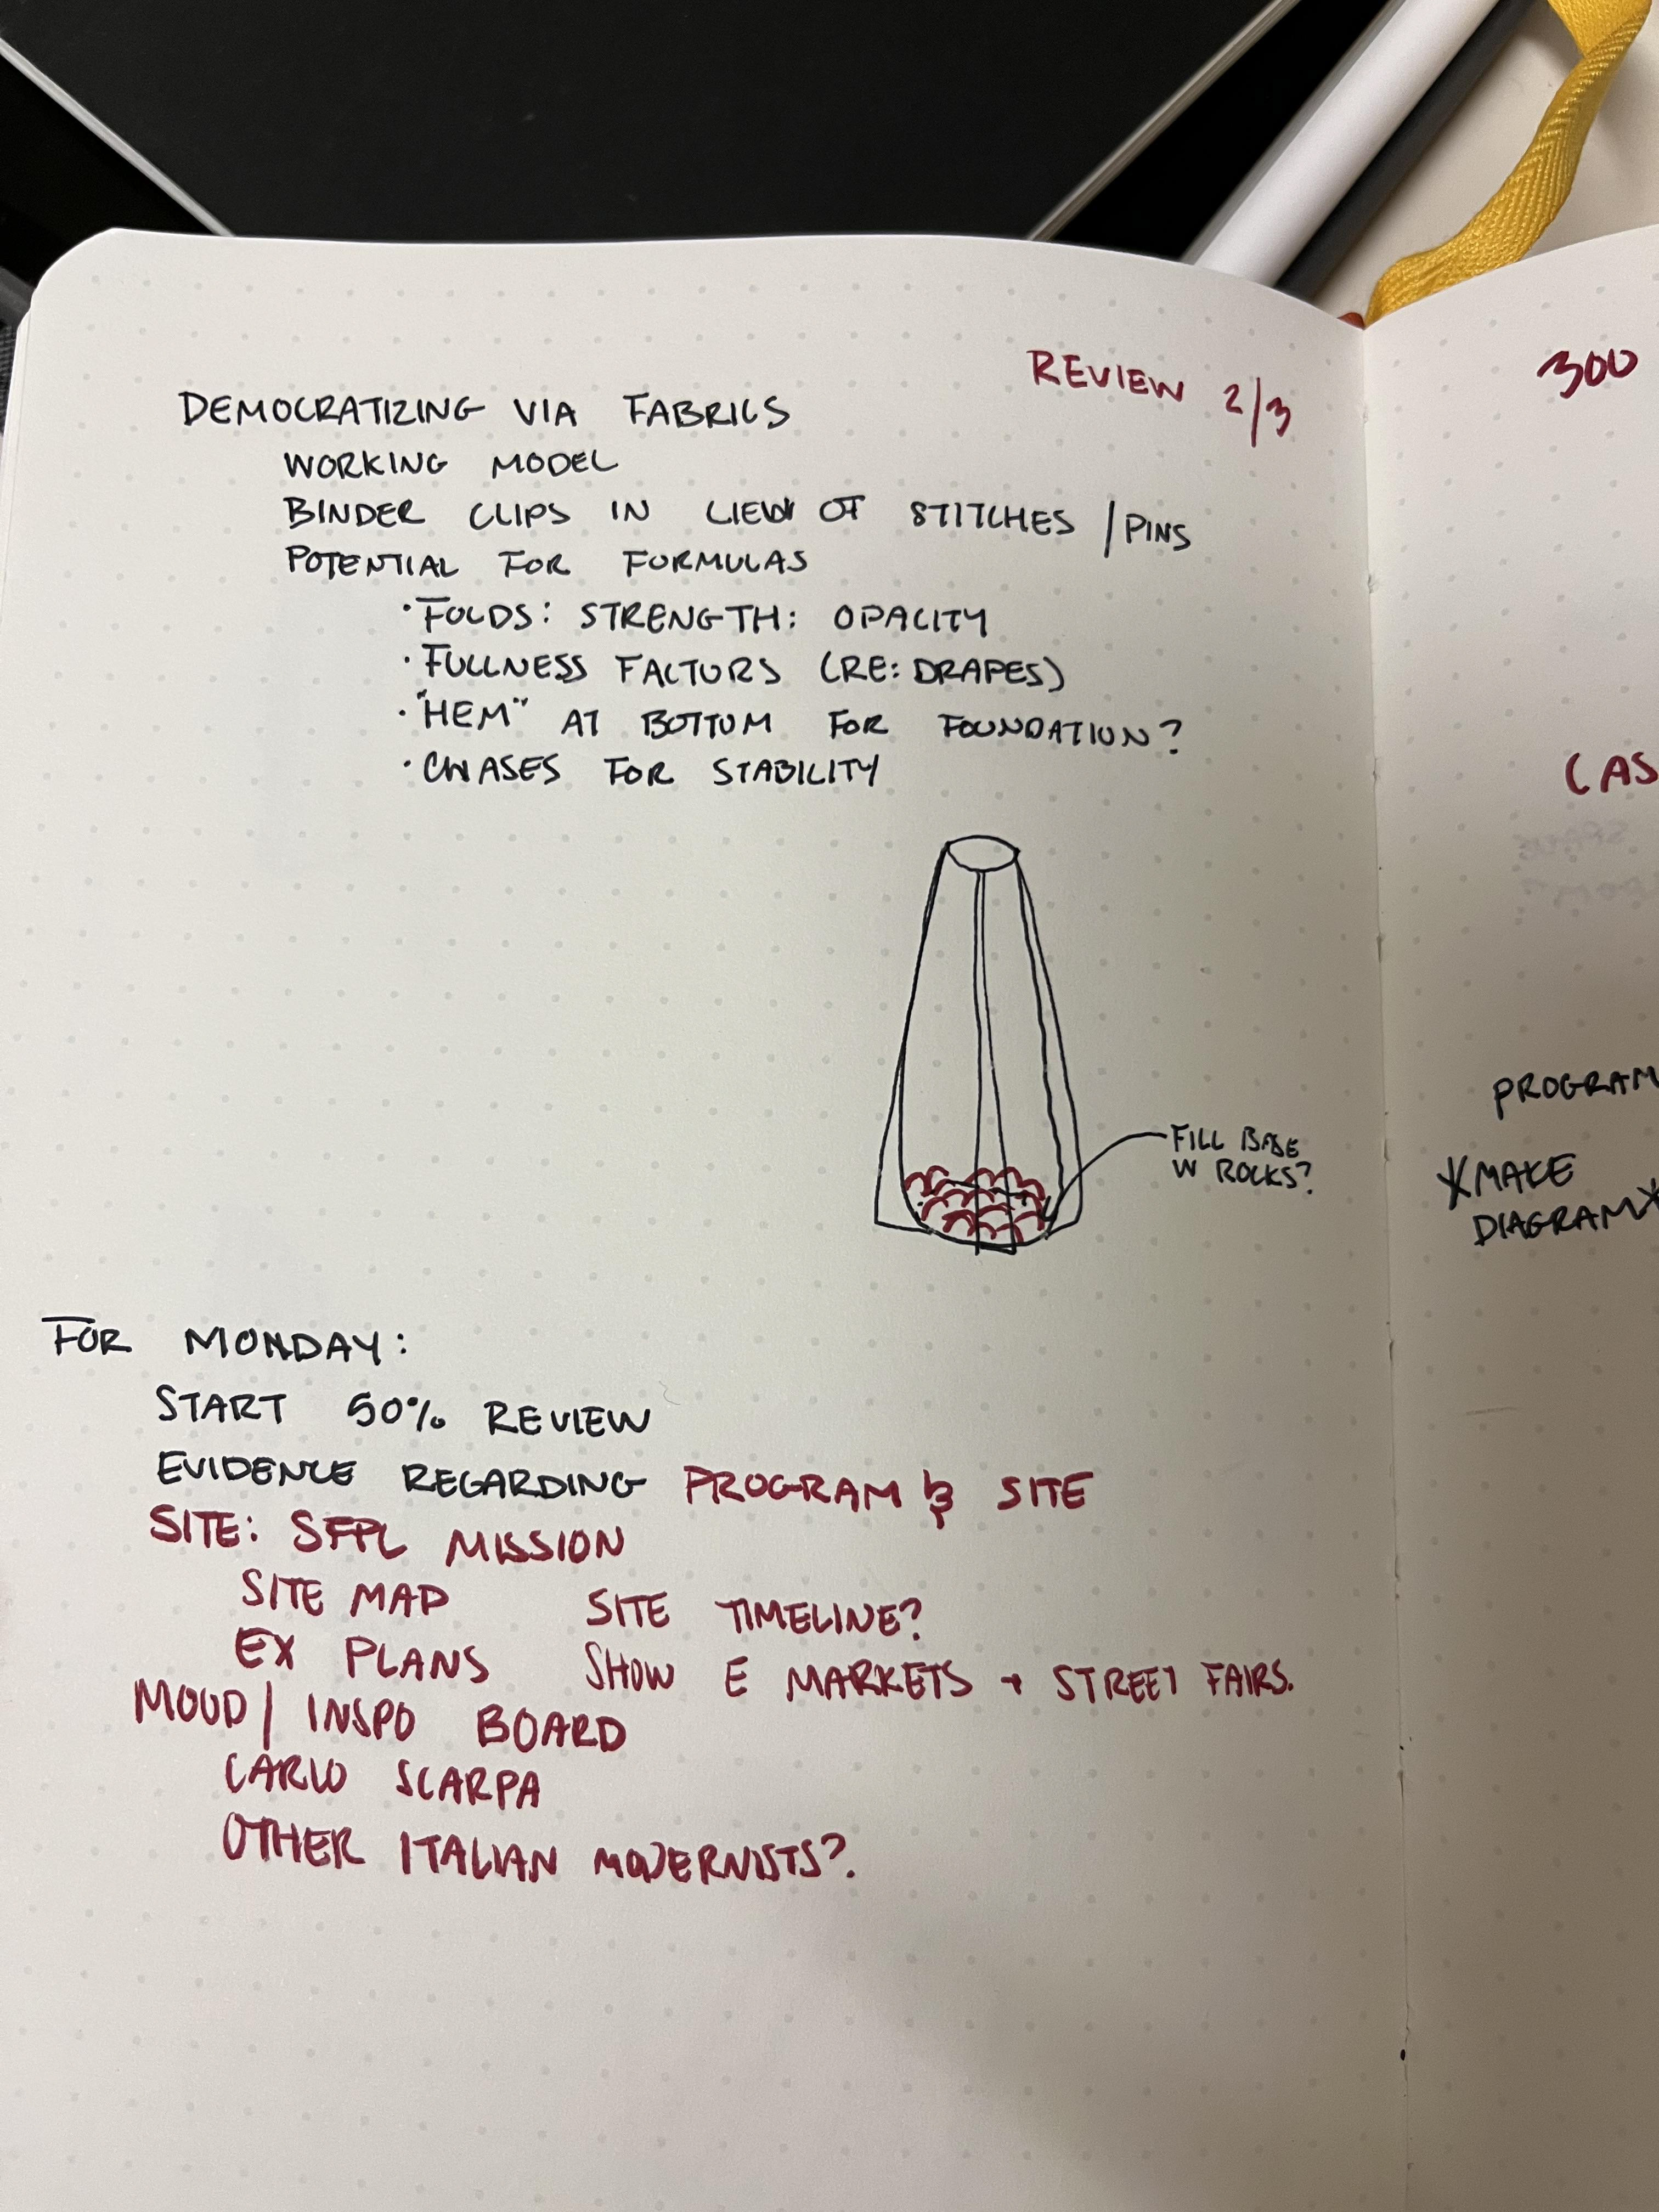 REVIEW 2/3
DEMOCRATIZING VIA FABRICS
WORKING MODEL
BINDER CLIPS IN LIEU OF STITCHES / PINS
POTENTIAL FOR FORMULAS
· FOLDS: STRENGTH: OPACITY
· FULLNESS FACTORS (RE: DRAPES)
· "HEM" AT BOTTOM FOR FOUNDATION?
· FOR STABILITY
FILL BASE
W ROCKS?
FOR MONDAY:
START 50% REVIEW
EVIDENCE REGARDING PROGRAM & SITE
SITE: SFPL MISSION
SITE MAP SITE TIMELINE?
EX PLANS SHOW E MARKETS + STREET FAIRS.
MOOD / INSPO BOARD
CARLO SCARPA
OTHER ITALIAN MODERNISTS?.
300
CAS
PROGRAM
*MAKE
DIAGRAM*